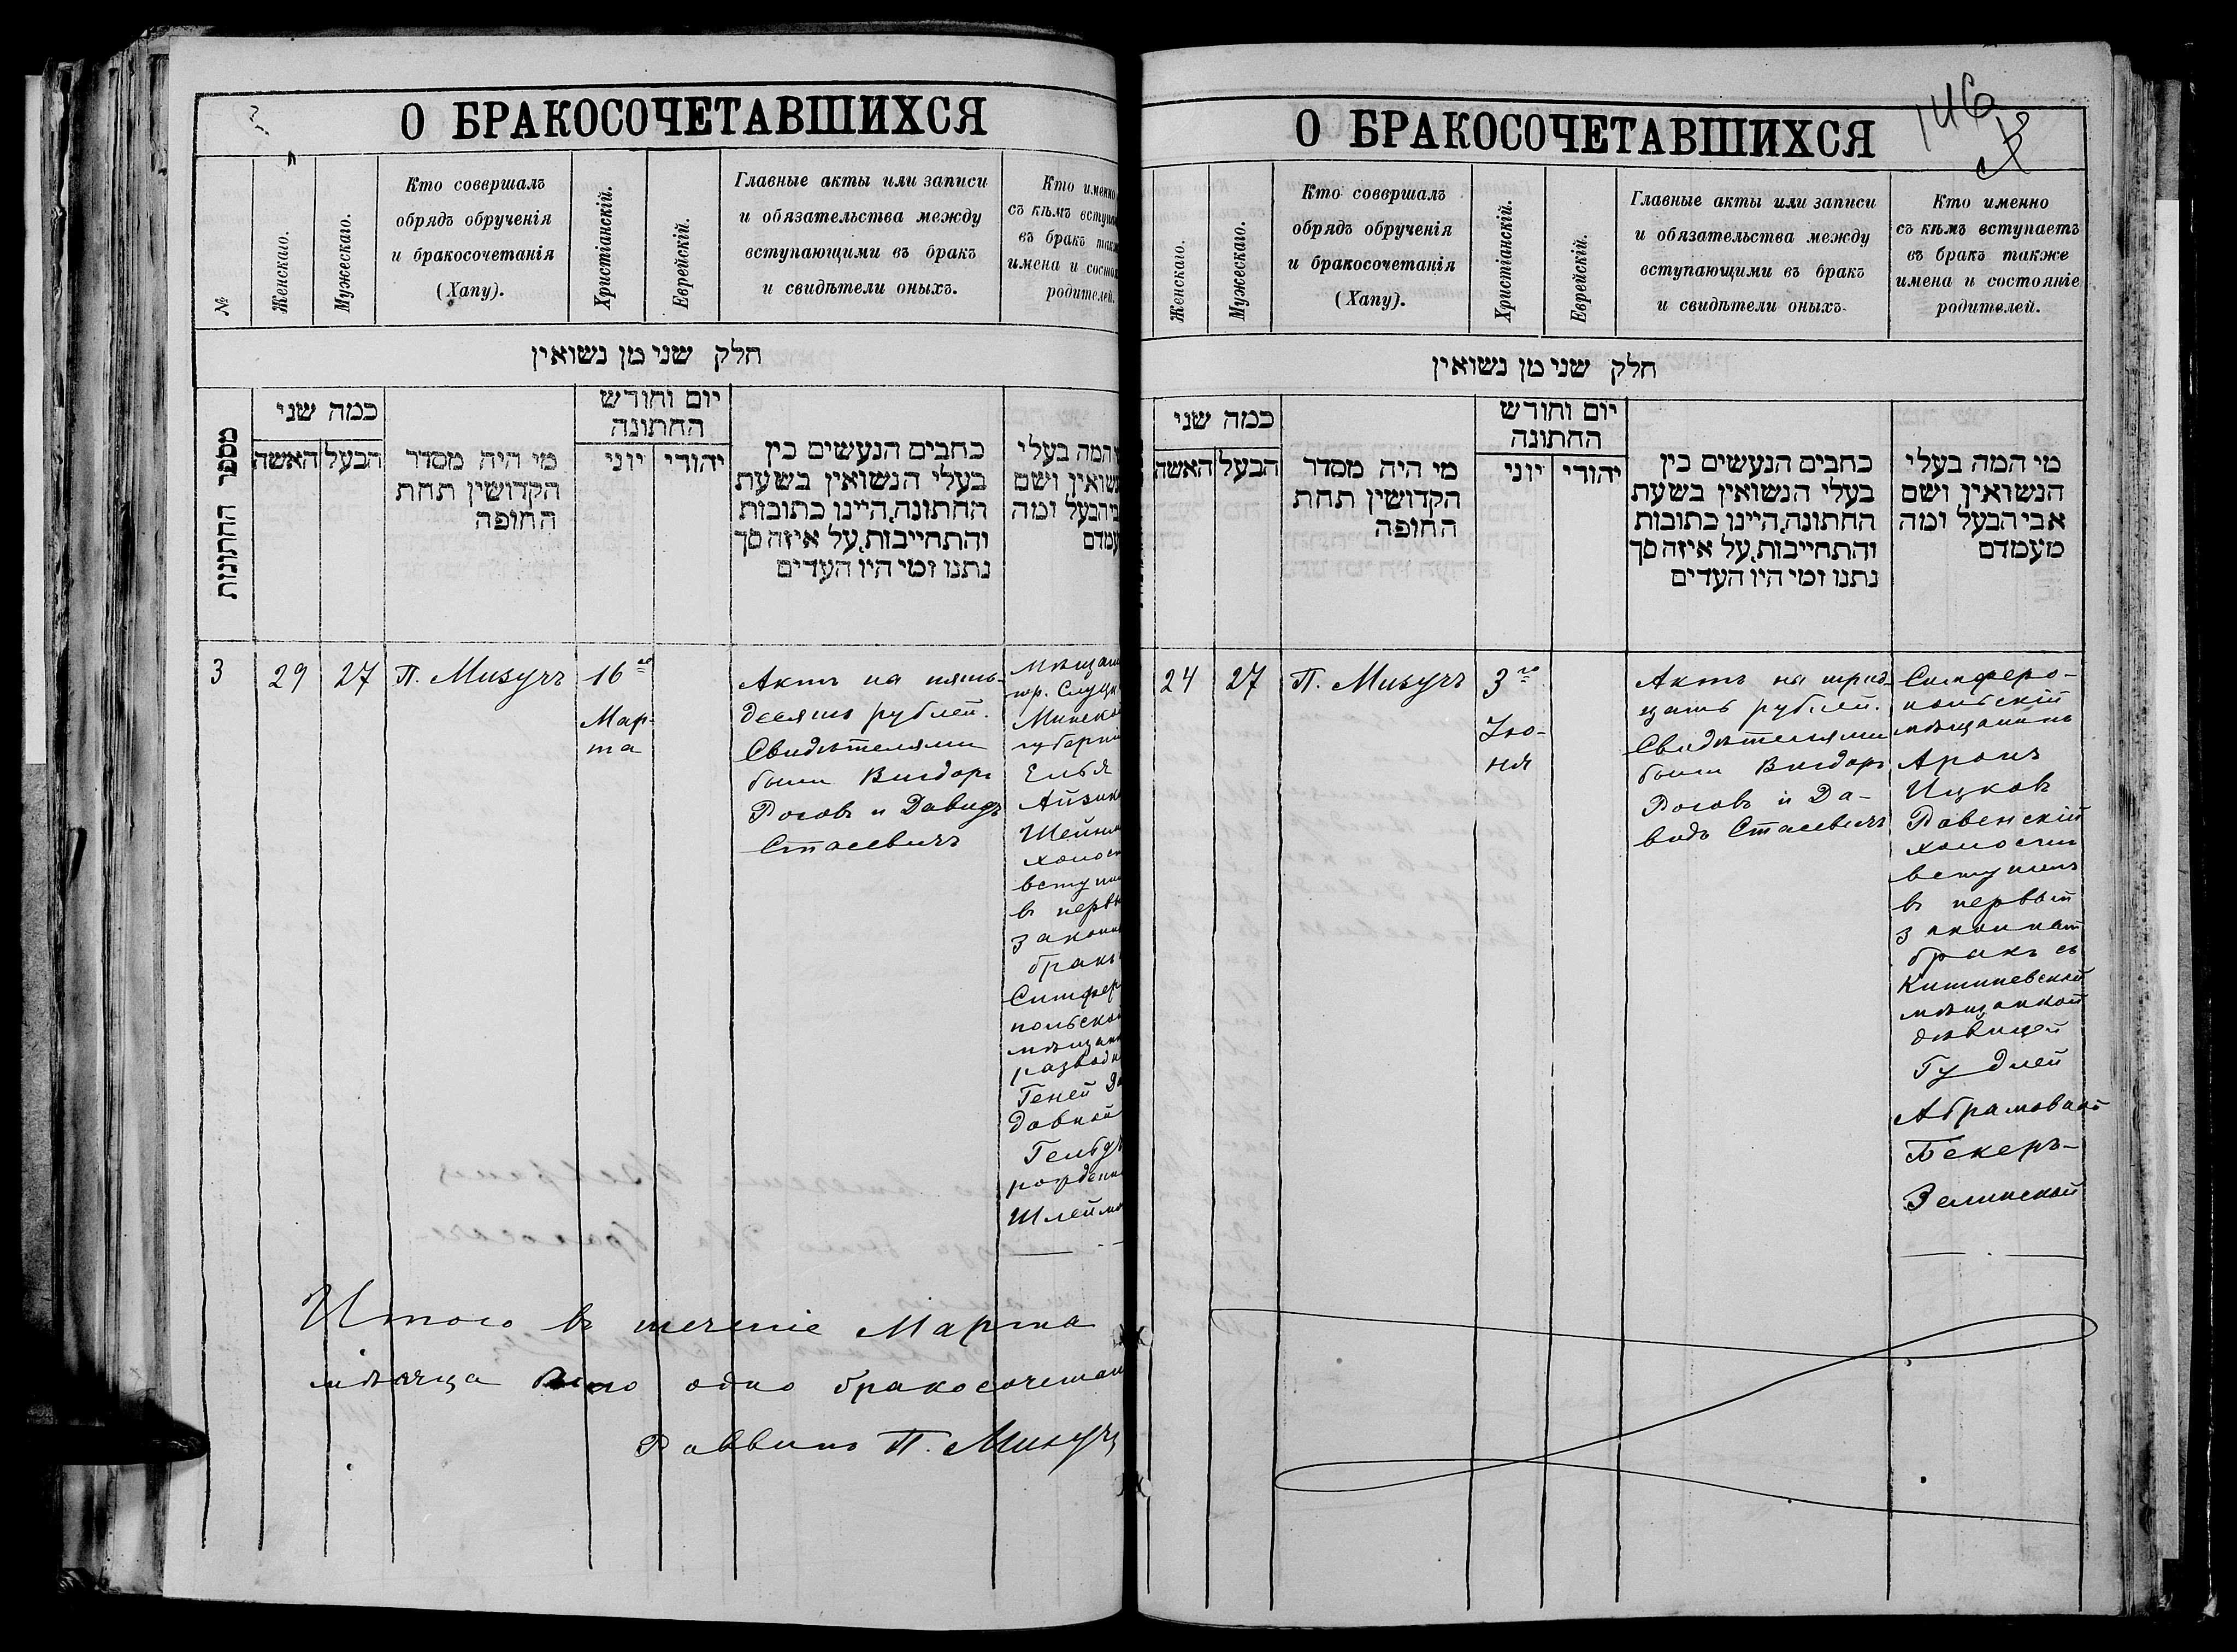 О БРАКОСОЧЕТАВШИХСЯ
№
Женскаго.
Мужескаго.
Кто совершалъ
обрядъ обрученія
и бракосочетанія
(Хапу).
Христіанскій.
Еврейскій.
Главные акты или записи
и обязательства между
вступающими въ бракъ
и свидѣтели оныхъ.
Кто именно
съ кѣмъ вступа
въ бракъ так
имена и состо
родителей.
חלק שני מן נשואין
מספר החתונות
כמה שני
האשה
הבעל
מי היה מסדר
הקדושין תחת
החופה
יום וחודש
החתונה
יוני
יהודי
כתבים הנעשים בין
בעלי הנשואין בשעת
החתונה, היינו כתובות
והתחייבות, על איזה סך
נתנו ומי היו העדים
המה בעלי
נשואין ושם
אבי הבעל ומה
עמדם
3
29
27
П. Мизучъ
16го
Мар-
та
Актъ на пять-
десятъ рублей.
Свидѣтелями
были Вигдоръ
Роговъ и Давидъ
Стасевичъ
Мѣщан
гор. Слуцк
Минской
губерніи
Елья
Айзик
Шейн
холост
вступил
въ первы
законн
бракъ
Симфер
польской
мѣщанк
разводн
Геней Да
довной
Гельд
рожденн
Шлейм
Итого въ теченіе Марта
мѣсяца было одно бракосочетан
Раввинъ П. Мизучъ
146
О БРАКОСОЧЕТАВШИХСЯ
Женскаго.
Мужескаго.
Кто совершалъ
обрядъ обрученія
и бракосочетанія
(Хапу).
Христіанскій.
Еврейскій.
Главные акты или записи
и обязательства между
вступающими въ бракъ
и свидѣтели оныхъ.
Кто именно
съ кѣмъ вступаетъ
въ бракъ также
имена и состояніе
родителей.
חלק שני מן נשואין
כמה שני
האשה
הבעל
מי היה מסדר
הקדושין תחת
החופה
יום וחודש
החתונה
יוני
יהודי
כתבים הנעשים בין
בעלי הנשואין בשעת
החתונה, היינו כתובות
והתחייבות, על איזה סך
נתנו ומי היו העדים
מי המה בעלי
הנשואין ושם
אבי הבעל ומה
מעמדם
24
27
П. Мизучъ
3го
Ію-
ня
Актъ на трид-
цать рублей.
Свидѣтелями
были Вигдоръ
Роговъ и Да-
видъ Стасевичъ
Симферо-
польскій
мѣщанинъ
Аронъ
Ицковъ
Равенскій
холостъ
вступилъ
въ первый
законный
бракъ съ
Кишиневской
мѣщанкой
дѣвицей
Гудлей
Абрамовной
Бекеръ-
Зелинской